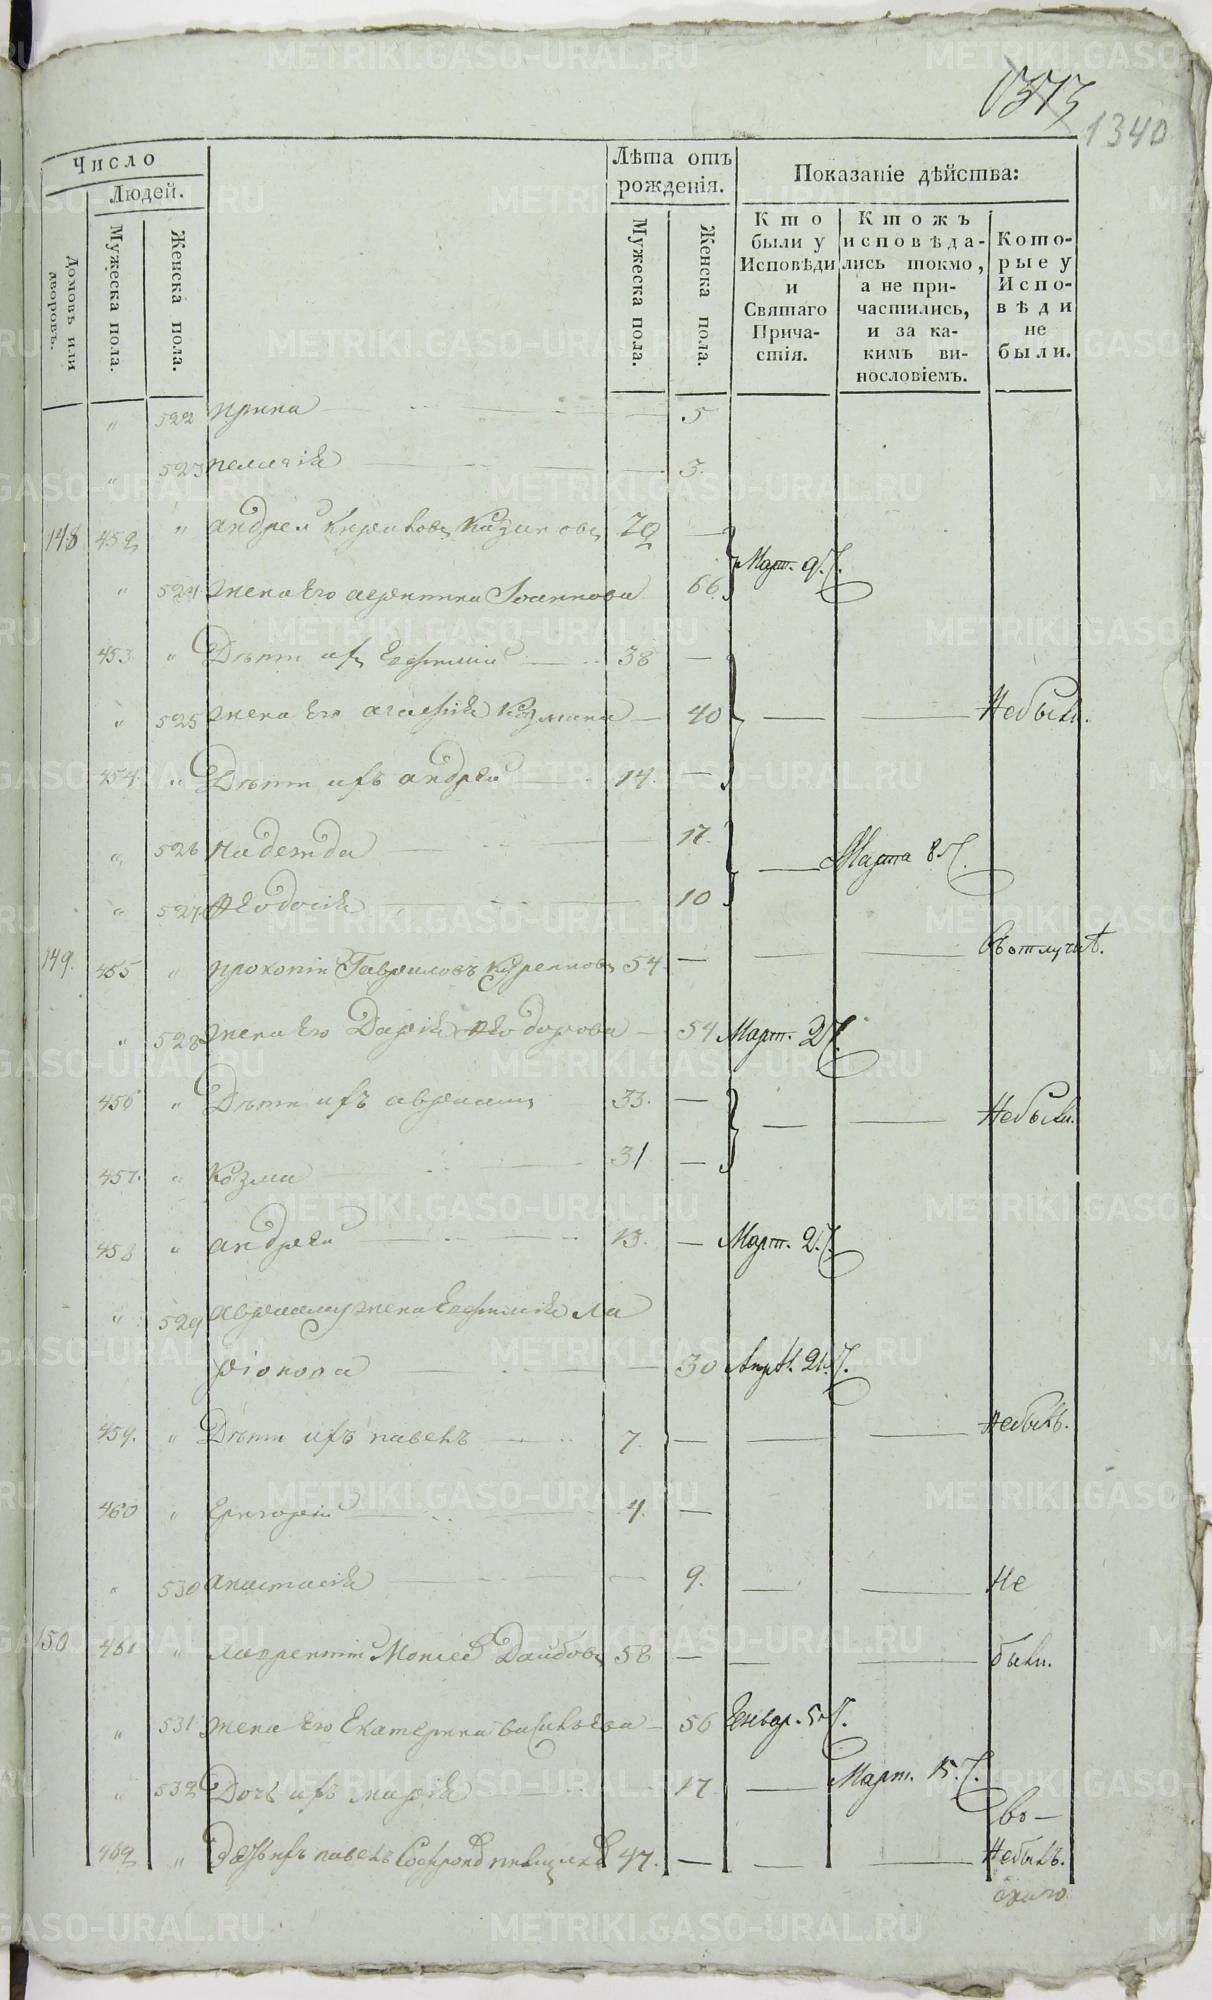 1373
1340
Число
Людей.
Домовъ или дворовъ.
Мужеска пола.
Женска пола.
Лѣта отъ рожденія.
Мужеска пола.
Женска пола.
Показаніе дѣйства:
Кто были у Исповѣди и Святаго Причастія.
Ктожъ исповѣдались токмо, а не причастились, и за какимъ винословіемъ.
Которые у Исповѣди не были.
" 522 Ирина — 5
" 523 Пелагія — 3.
148 452 " Андрей 72 —
" 524 жена Его Іоаннова 66. Март. 9.
453 " Дѣти ихъ Евфимій 38 —
" 525 жена Его Агафія Козмина — 40 — — Небыли.
454 " Дѣти ихъ Андрей 14. —
" 526 Надежда — 17.
" 527 Ѳеодосія — 10 — Марта 8
149. 455 " Прокопій Гавриловъ 54 — — — Въ отлучкѣ.
" 528 жена Его Дарія Ѳеодорова — 54 Март. 2
456 " Дѣти ихъ Авраамъ 33. —
457. " Козма 31 — — — Небыли.
458 " Андрей 13. — Март. 2.
" 529 Авраама жена Евфимія Ла
ріонова — 30 Апрѣл. 21.
459. " Дѣти ихъ Павелъ 7. — — — Небылъ.
460 " Григорій 4. —
" 530 Анастасія — 9. — — Не
150 461 " Лаврентій Моисеев 58 — — — были.
" 531 жена Его Екатерина Васильева — 56 Генвар. 5
" 532 Дочь ихъ Марія — 17 — Март. 15.
462 " Павелъ 47. — — — Небылъ.